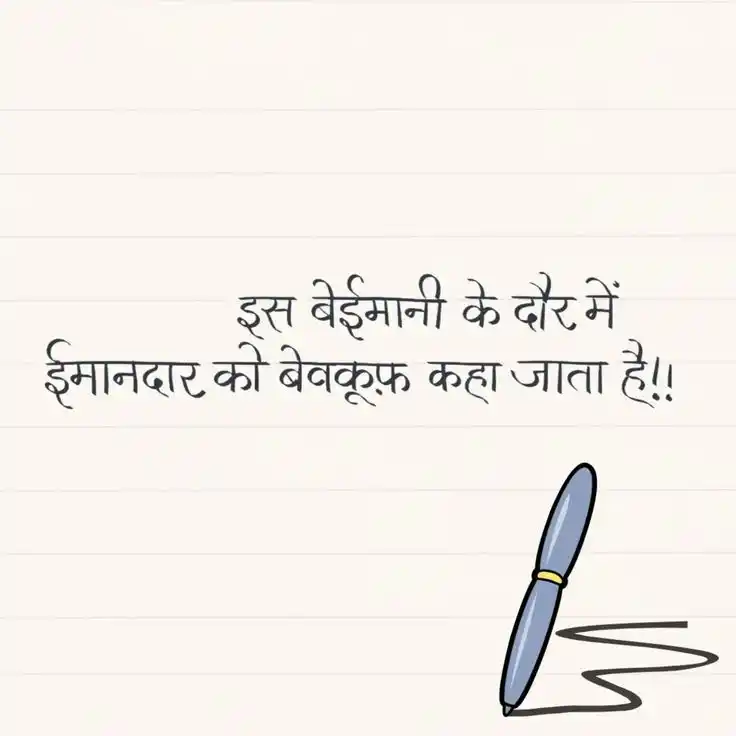 इस बेईमानी के दौर में
ईमानदार को बेवकूफ़ कहा जाता है!!